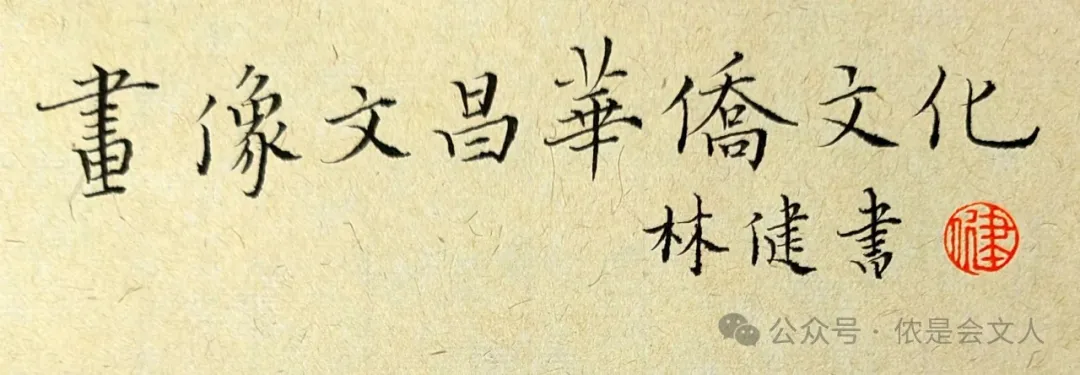 畫像文昌華僑文化
林健書
健
公众号·侬是会文人